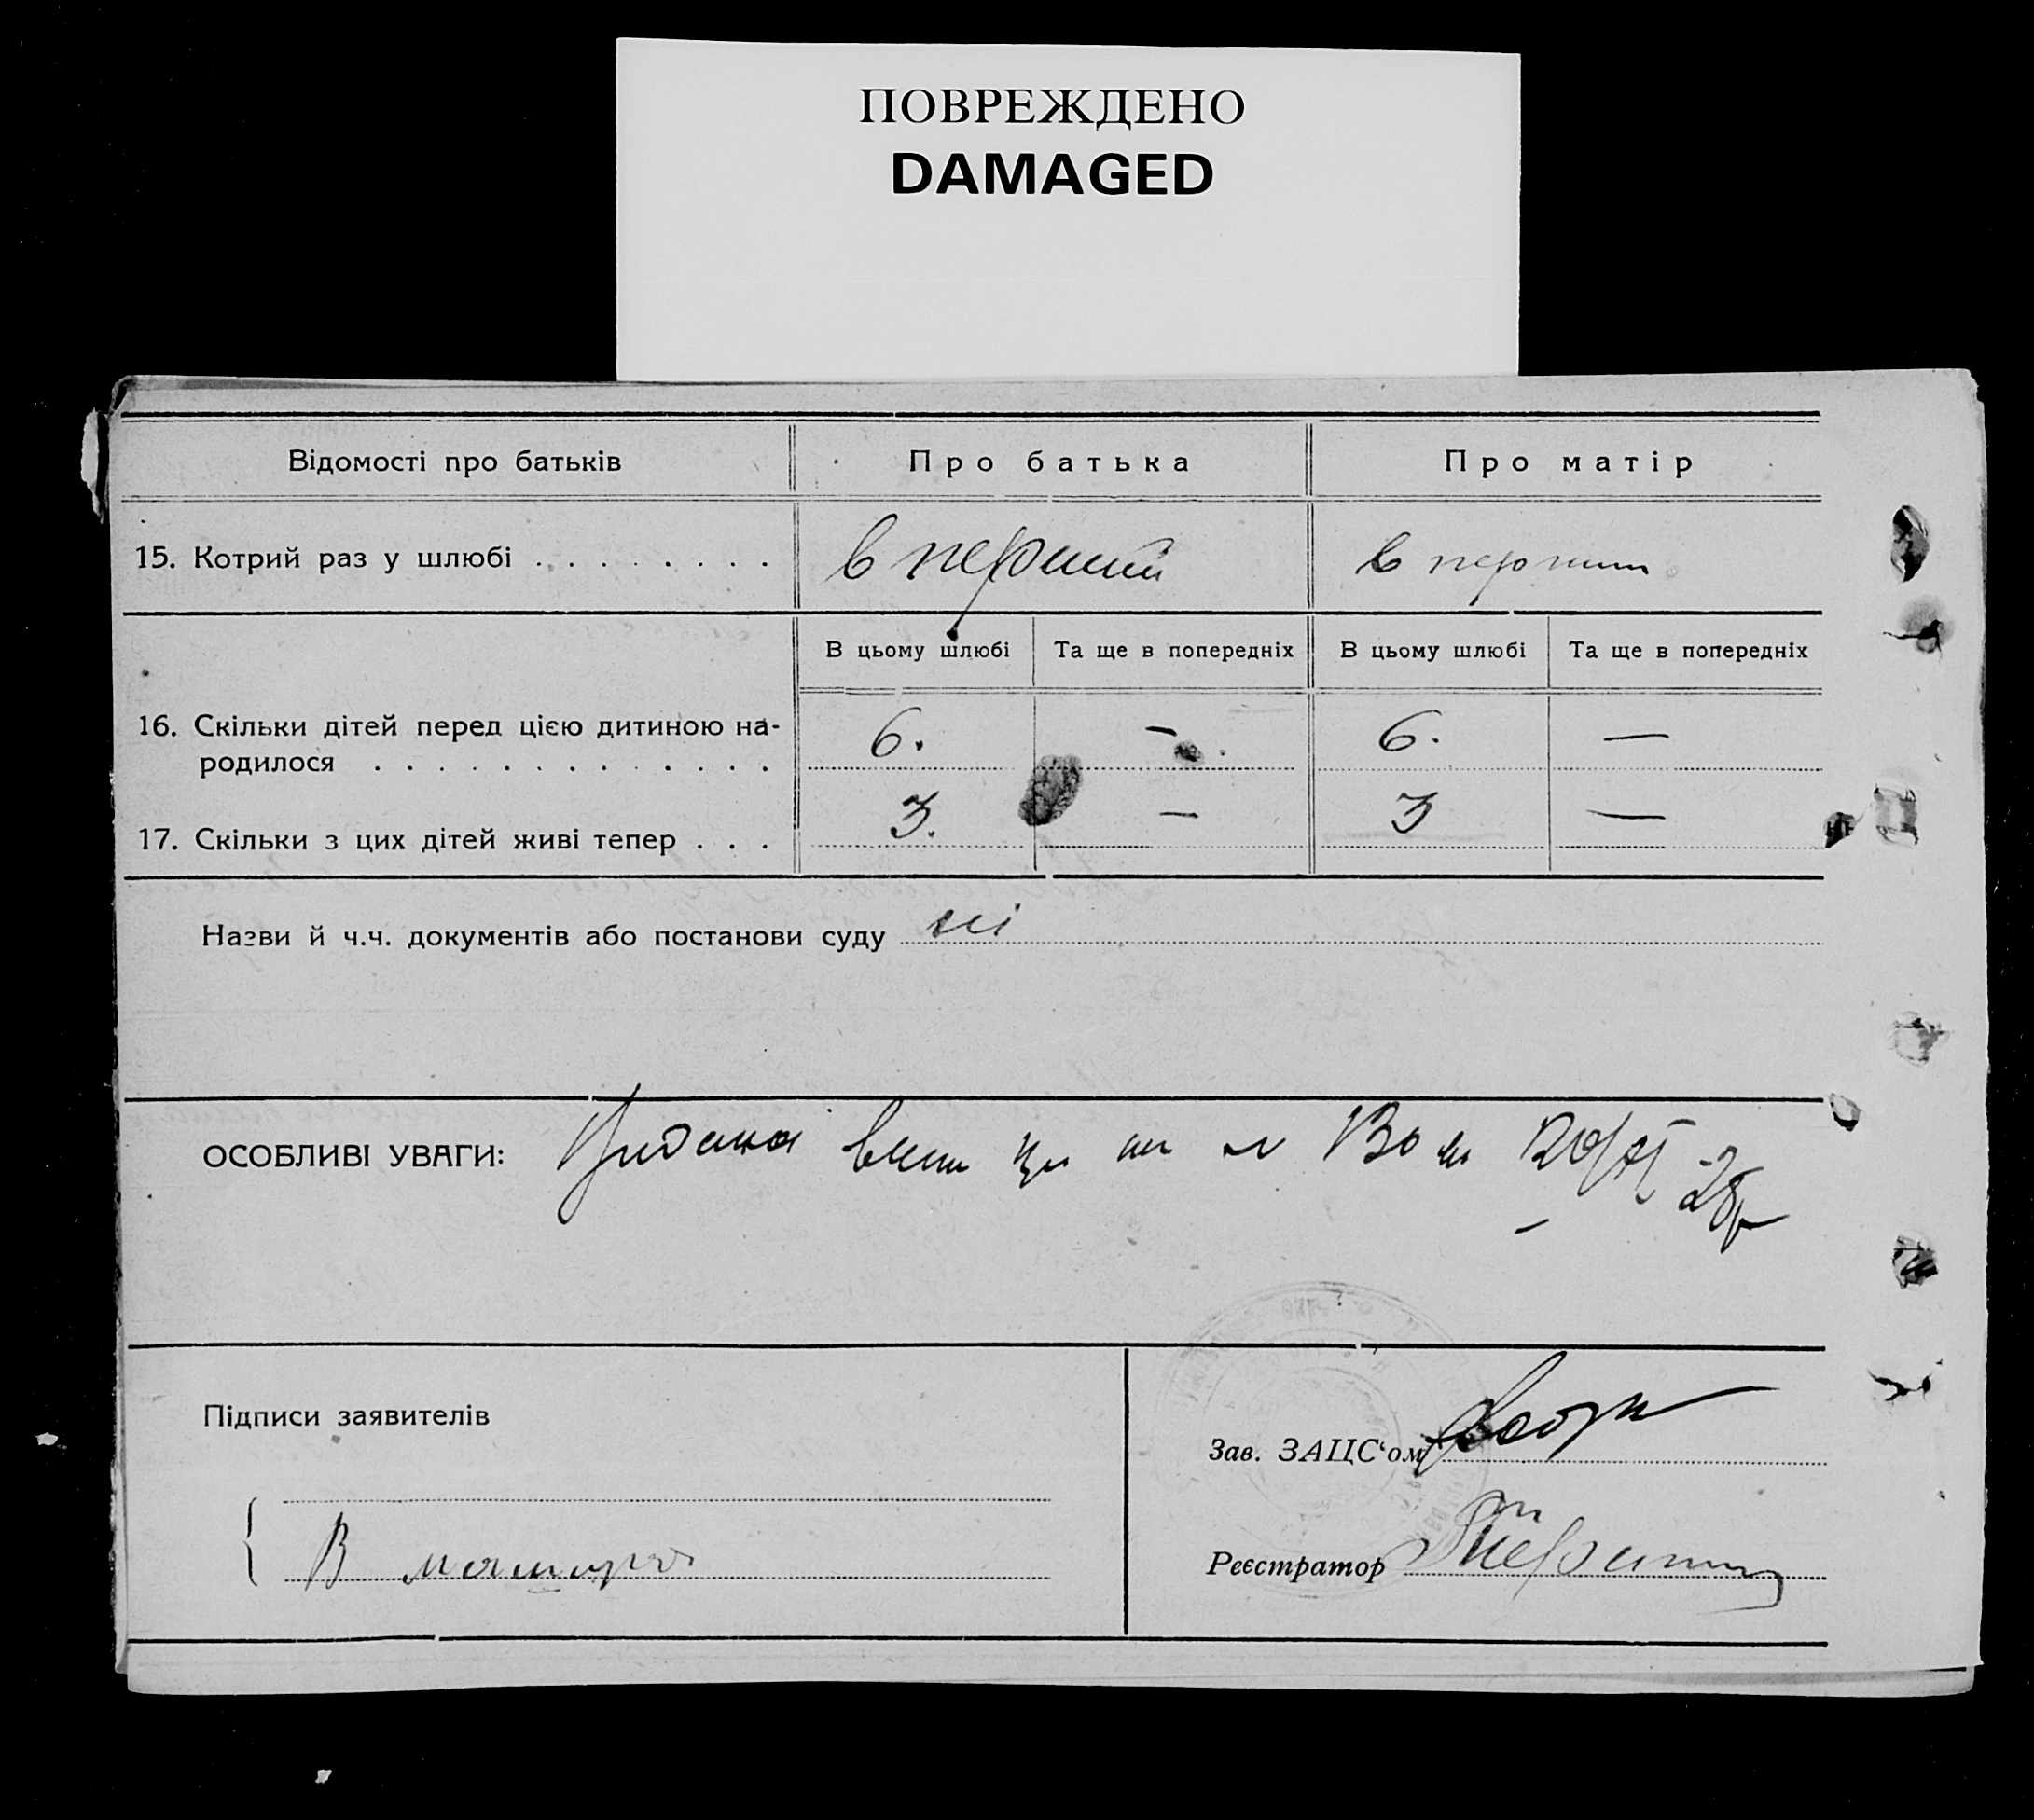 ПОВРЕЖДЕНО
DAMAGED
Відомості про батьків Про батька Про матір
15. Котрий раз у шлюбі . . . . . . . . в перший в перший
В цьому шлюбі Та ще в попередніх В цьому шлюбі Та ще в попередніх
16. Скільки дітей перед цією дитиною на-
родилося . . . . . . . . . . . . . 6. – 6. —
17. Скільки з цих дітей живі тепер . . . 3. — 3 —
Назви й ч.ч. документів або постанови суду ні
ОСОБЛИВІ УВАГИ:
Підписи заявителів
Зав. ЗАЦС‘ом
В
Реєстратор